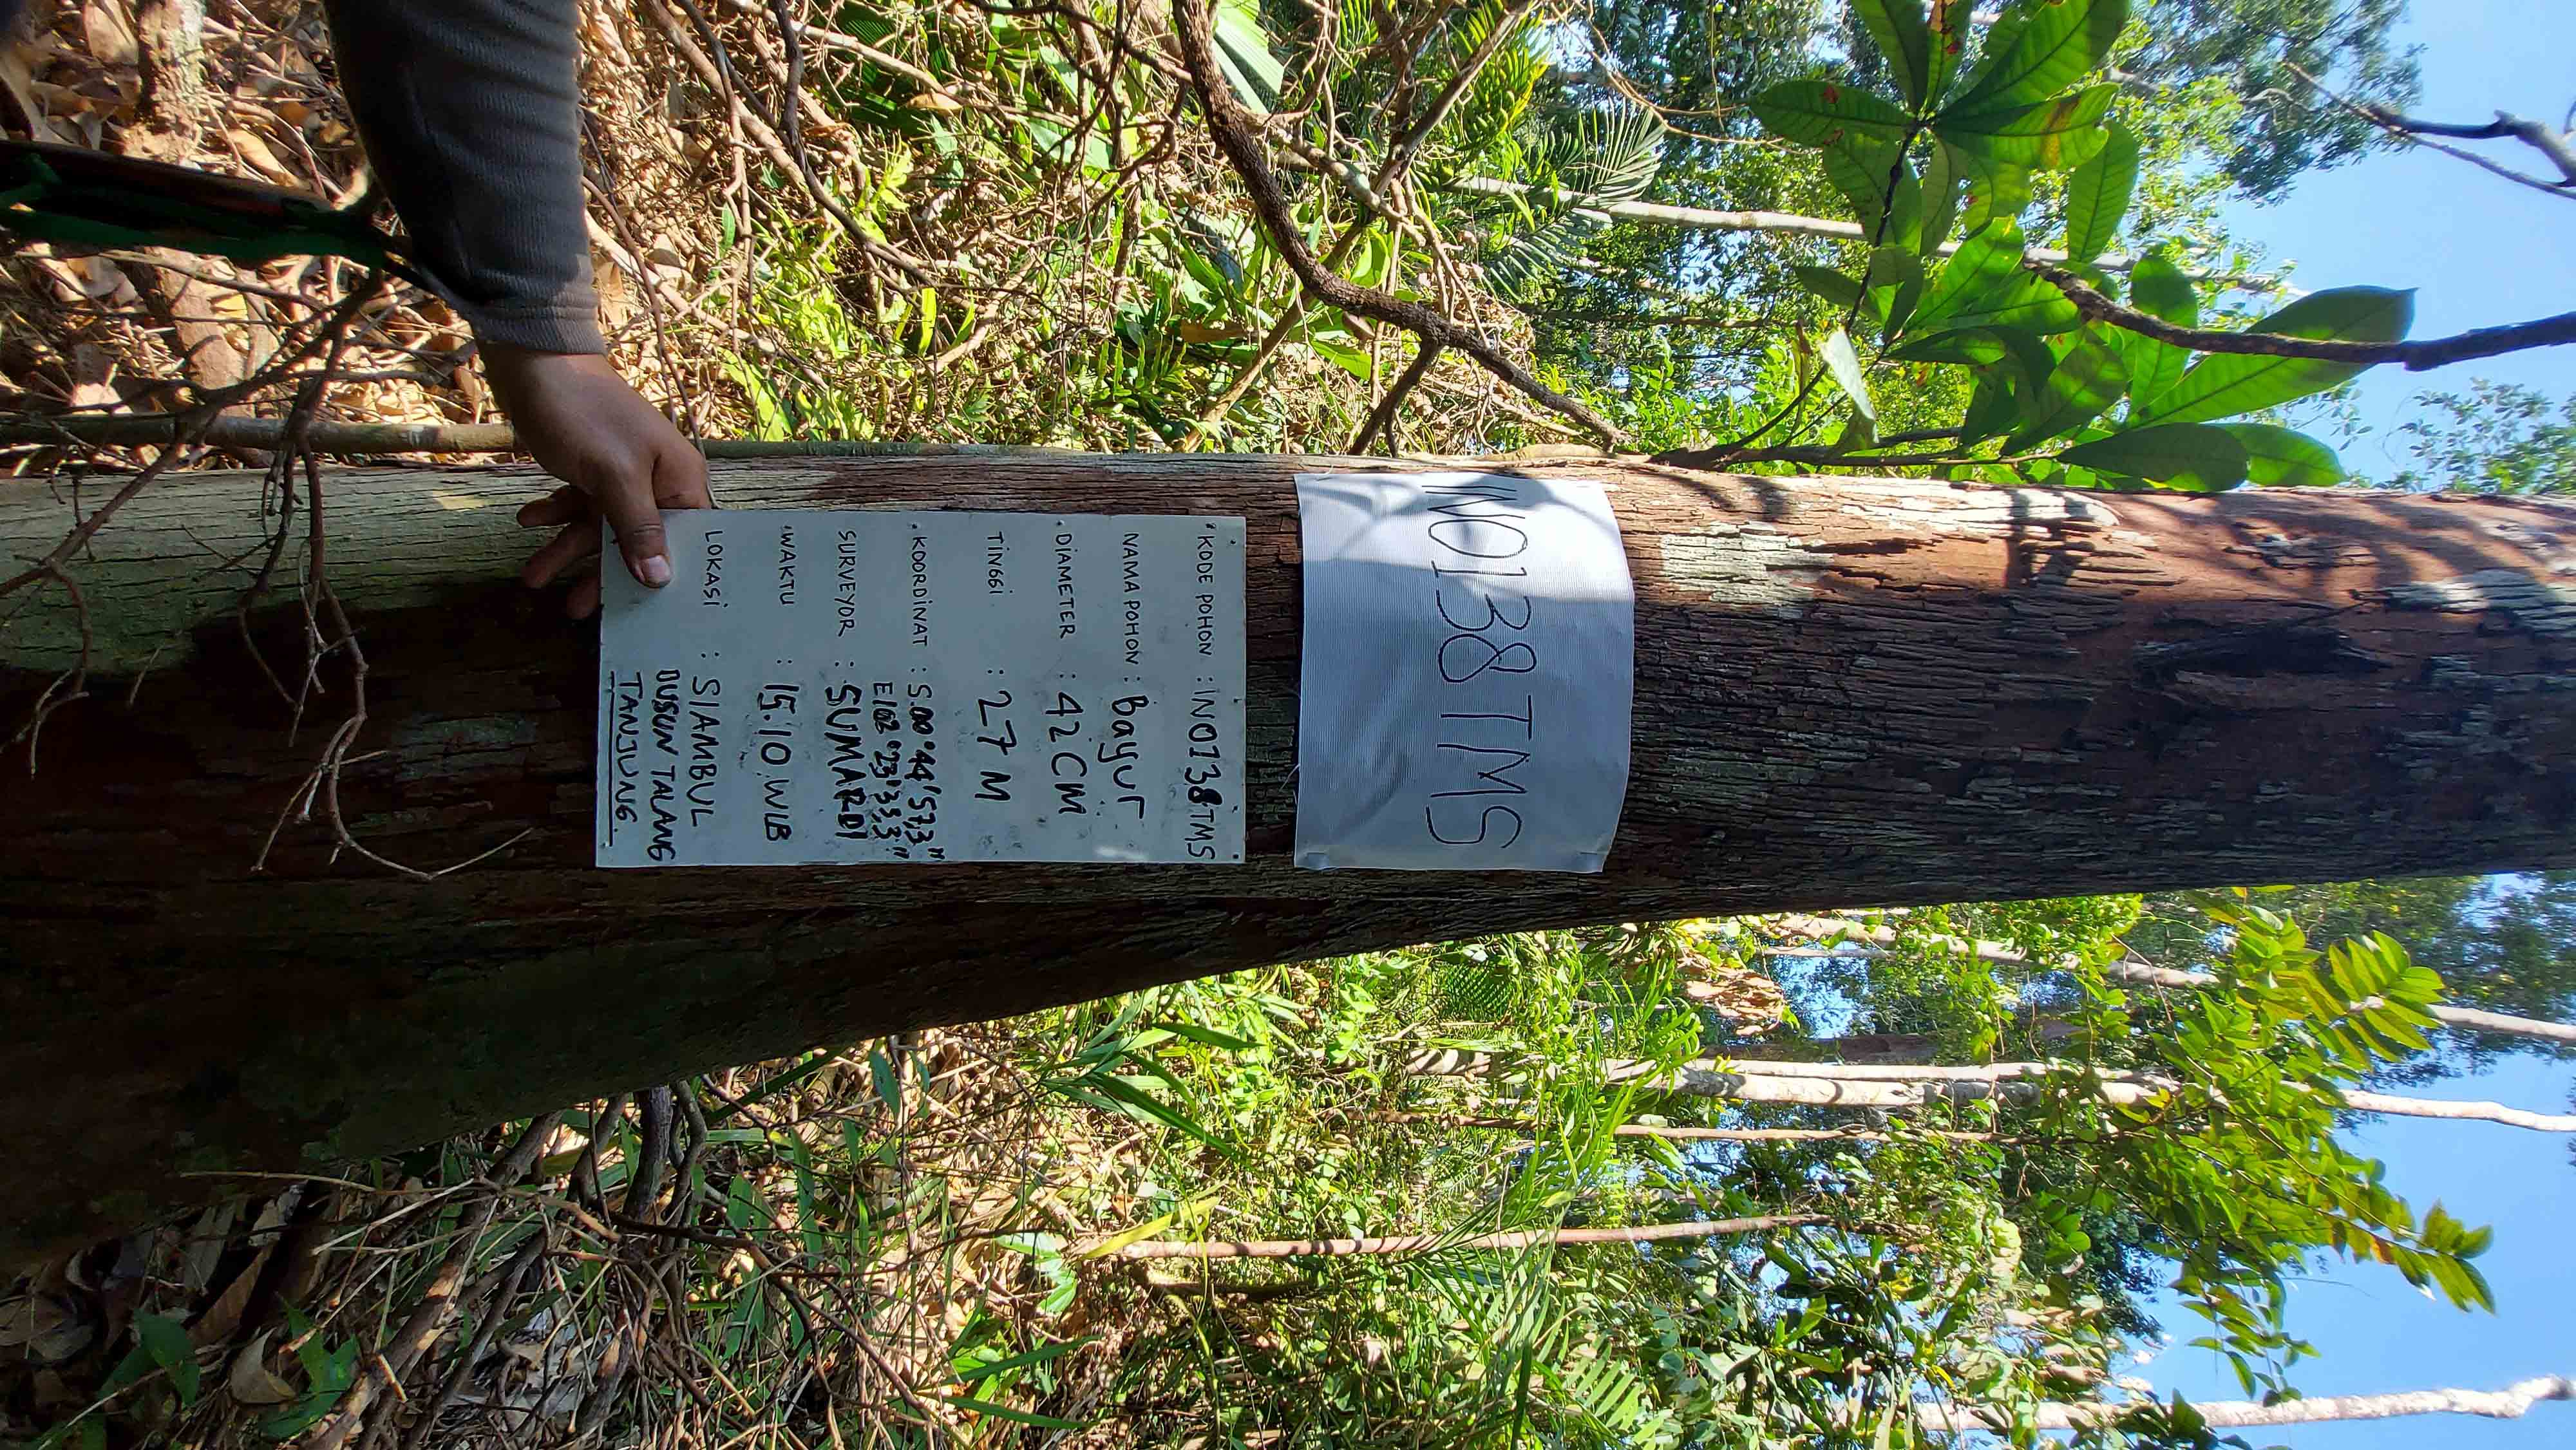 INO138TMS
KODE POHON : INO138TMS
NAMA POHON : Bayur
DIAMETER : 42 CM
TINGGI : 27 M
KOORDINAT : S.00°44'57,3"
E102°23'33,3"
SURVEYOR : SUMARDI
WAKTU : 15.10 WIB
LOKASI : SIAMBUL
DUSUN TALANG
TANJUNG.